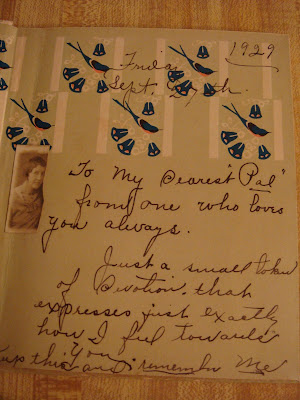 1929
Friday
Sept. 27th.
To My Dearest "Pal"
from one who loves
you always.
Just a small token
of Devotion. that
expresses just exactly
how I feel towards
You
this and remember Me